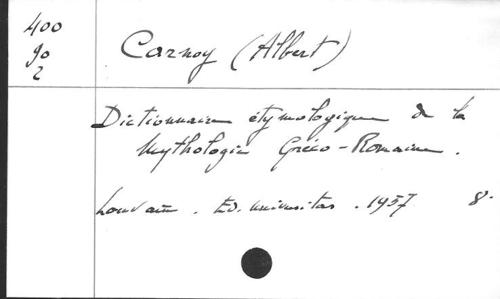 400
90
2
Carnoy (Albert)
Dictionnaire étymologique de la
Mythologie Gréco-Romaine.
Louvain. Ed. Universitas. 1957 8°